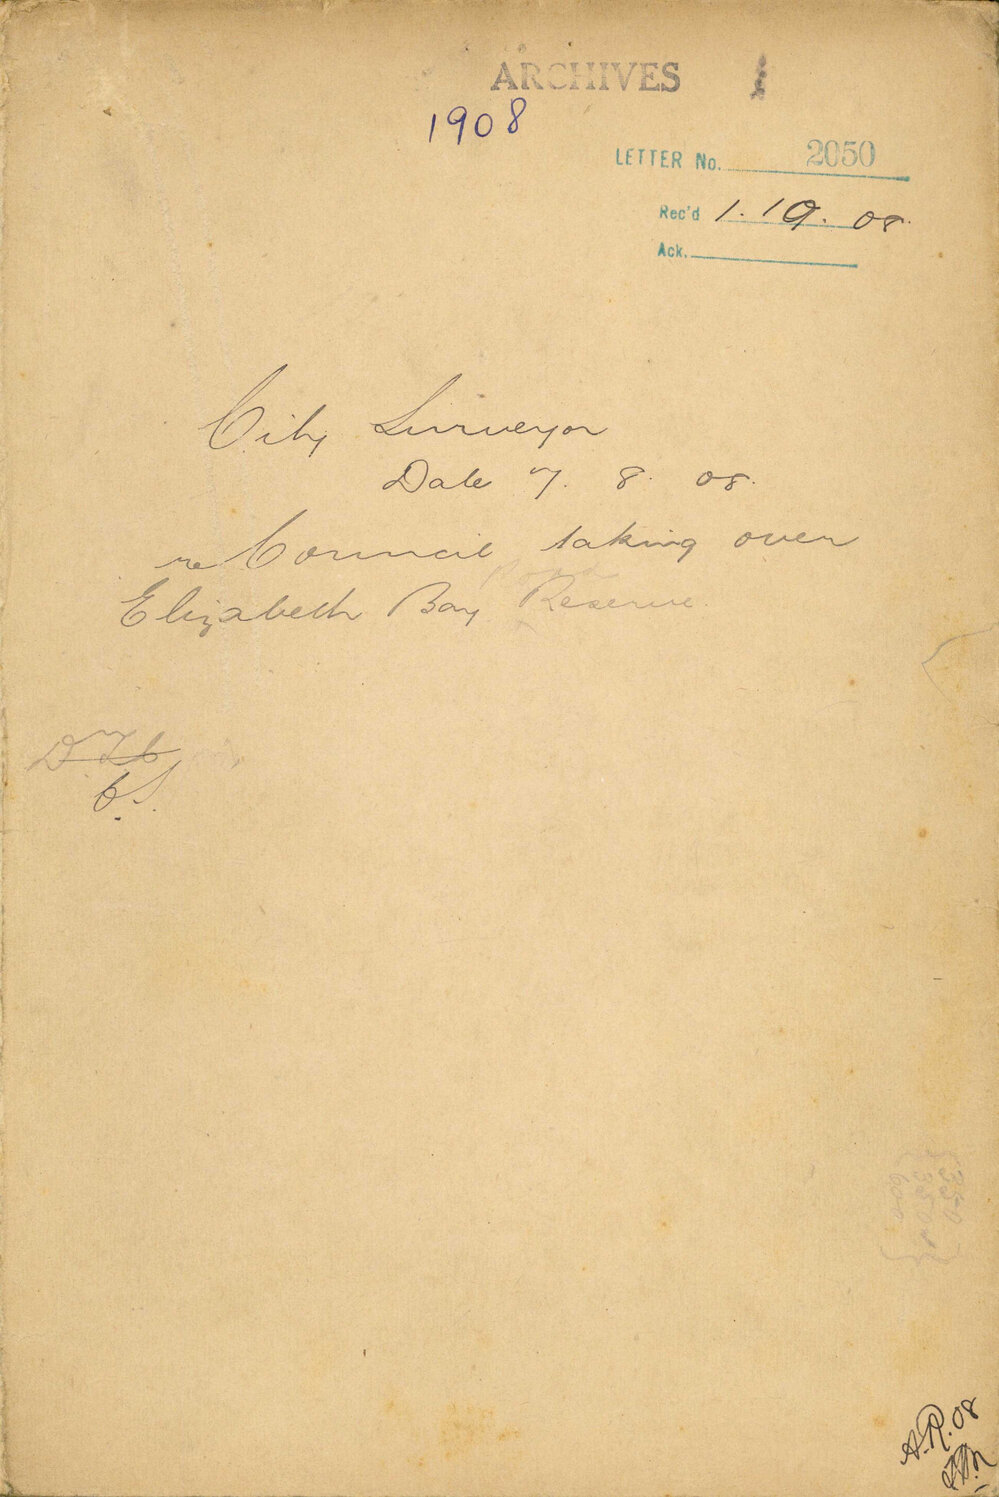 ARCHIVES
1908
LETTER No. 2050
Rec'd 1. 10. 08.
Ack.
City Surveyor
Date 7. 8. 08.
re Council taking over
Elizabeth Bay Reserve.
350
600
A.R. 08